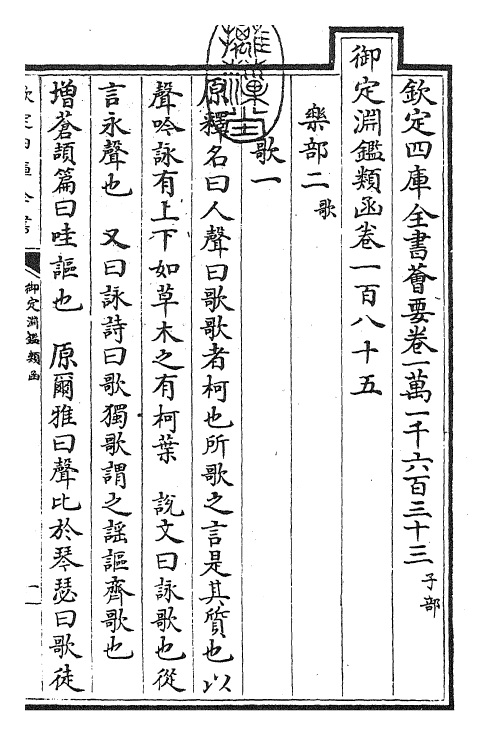 欽定四庫全書薈要卷一萬一千六百三十三 子部
御定淵鑑類函卷一百八十五
樂部二 歌
歌一
原釋名曰人聲曰歌歌者柯也所歌之言是其質也以
聲吟詠有上下如草木之有柯葉 說文曰詠歌也從
言永聲也 又曰詠詩曰歌獨歌謂之謡謳齊歌也
增蒼頡篇曰哇謳也 原爾雅曰聲比於琴瑟曰歌徒
御定淵鑑類函
一